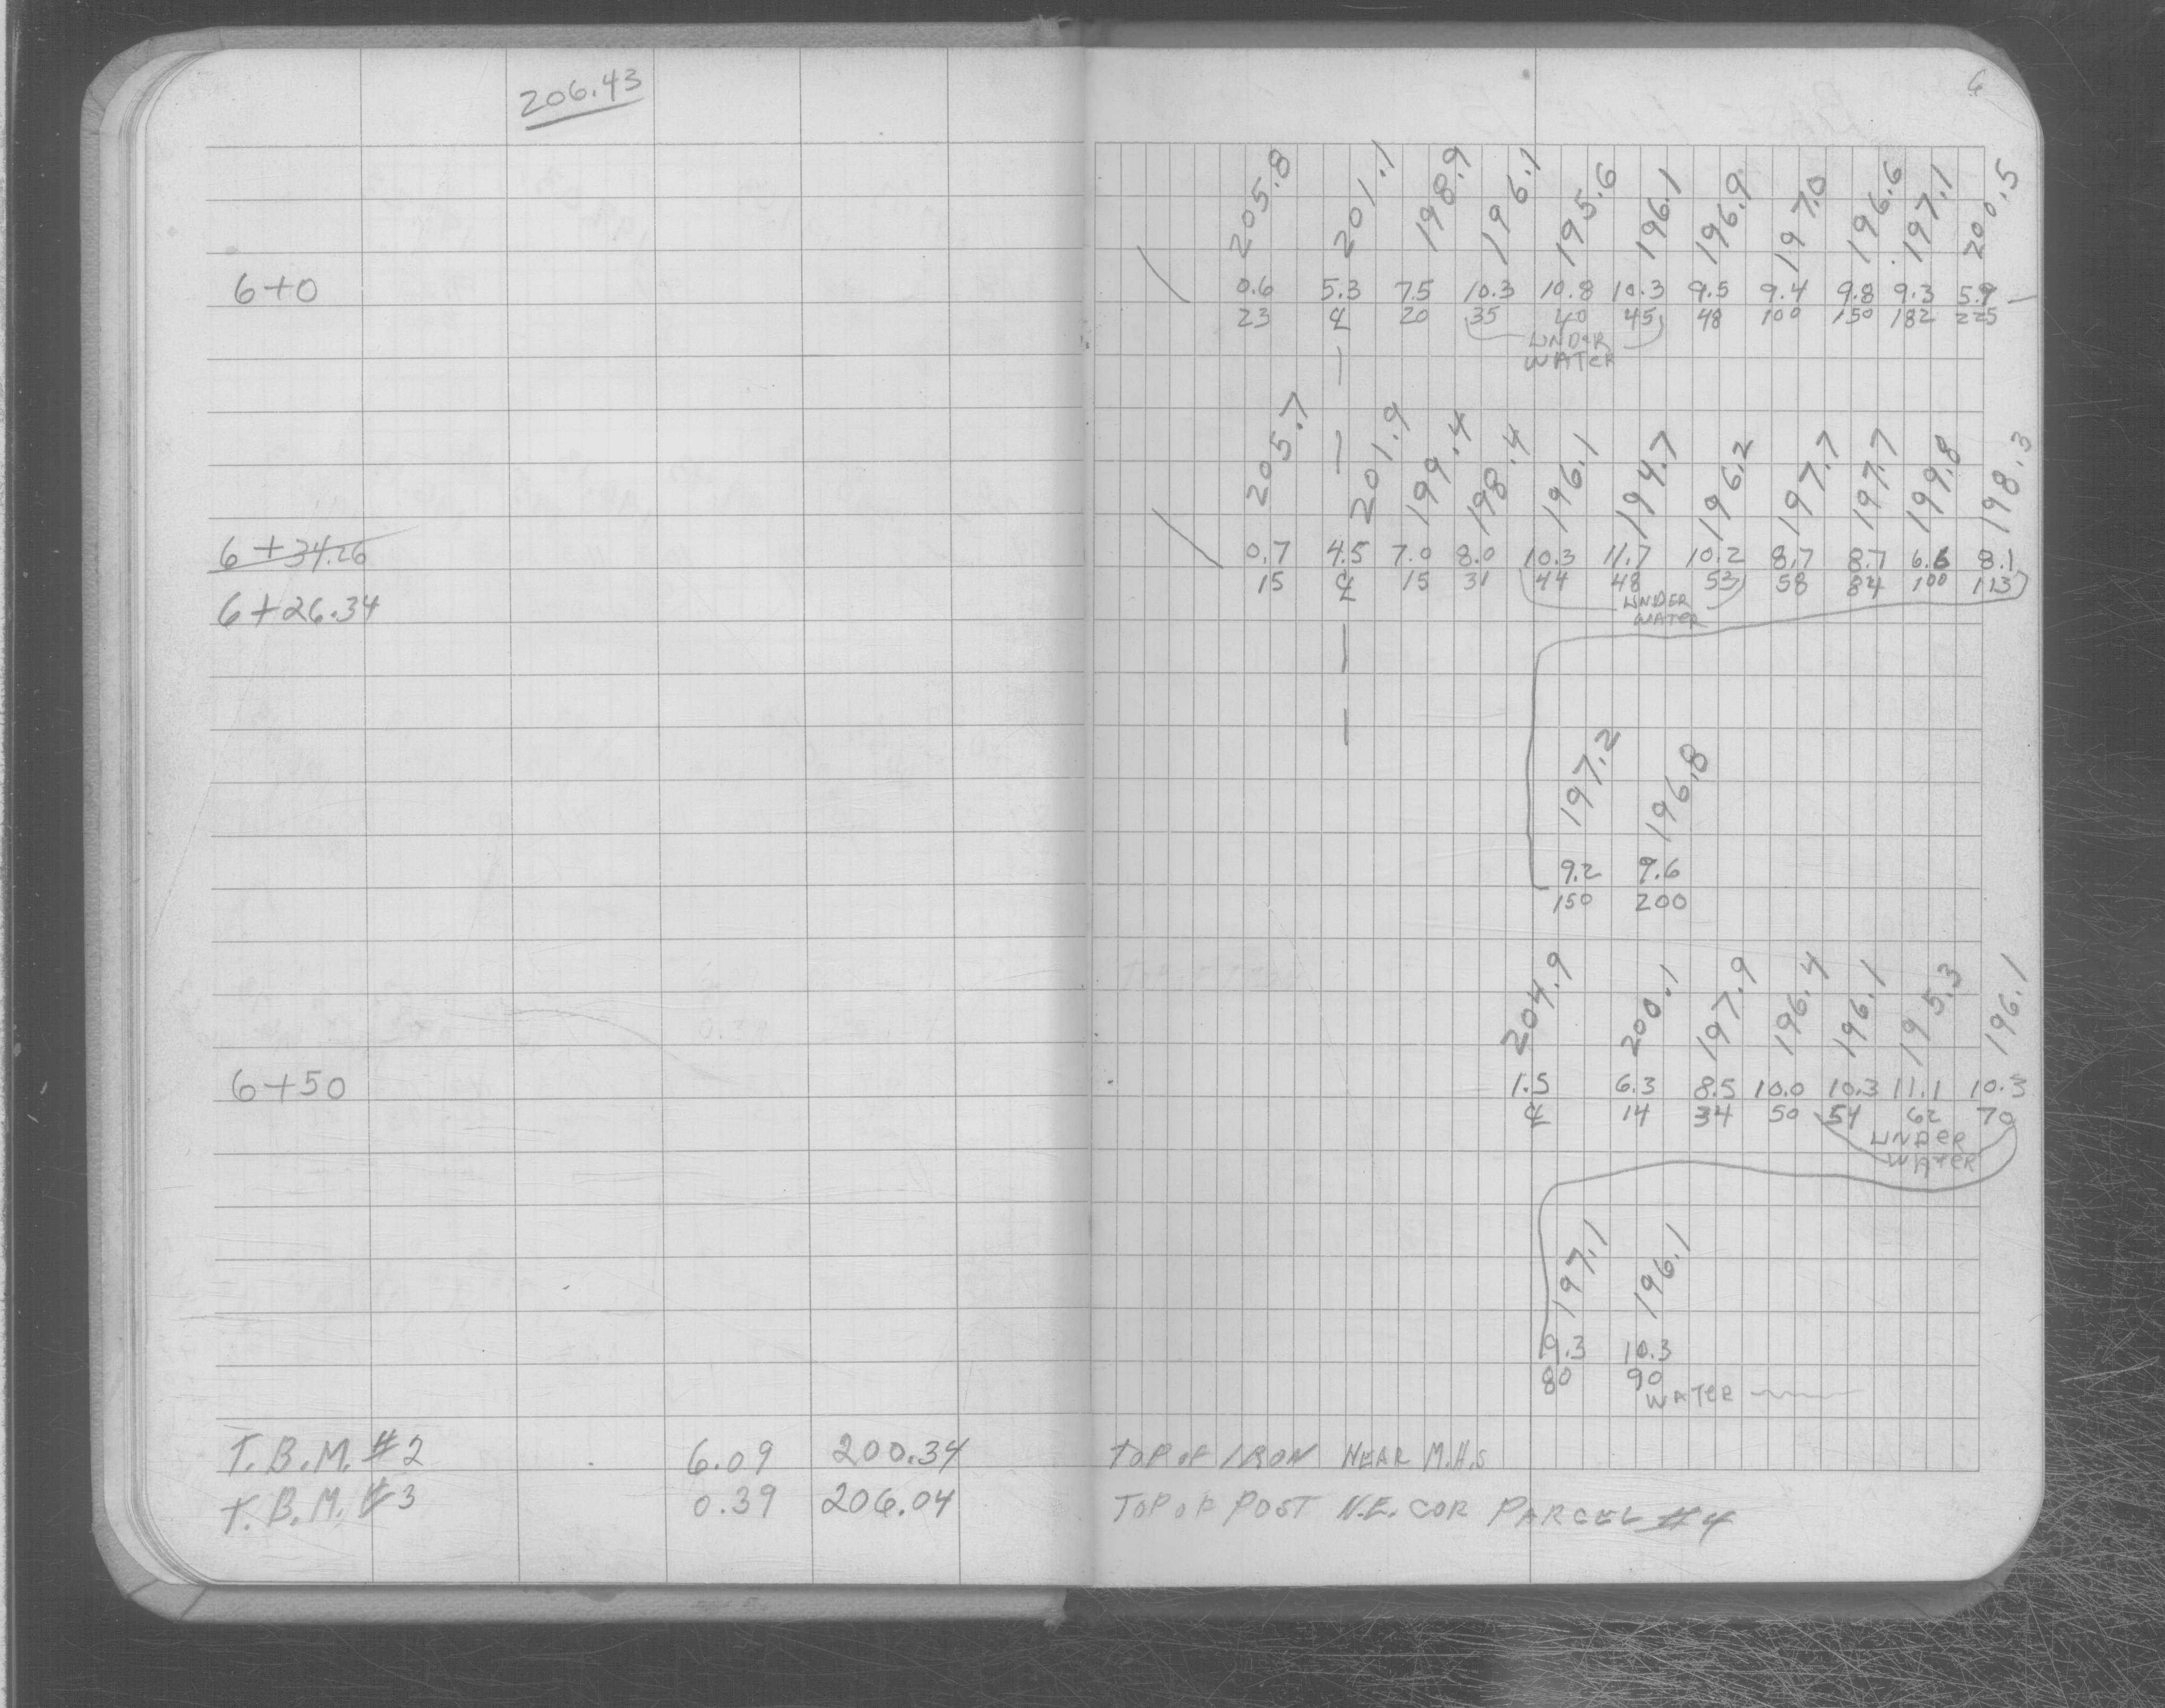 206.43
6
205.8 201.1 198.9 196.1 195.6 196.1 196.9 197.0 196.6 197.1 200.5
6+0 0.6 5.3 7.5 10.3 10.8 10.3 9.5 9.4 9.8 9.3 5.9
23 ℄ 20 35 40 45 48 100 150 182 225
UNDER
WATER
205.7 201.9 199.4 198.4 196.1 194.7 196.2 197.7 197.7 199.8 198.3
6+34.26 0.7 4.5 7.0 8.0 10.3 11.7 10.2 8.7 8.7 6.6 8.1
15 ℄ 15 31 44 48 53 58 84 100 113
6+26.34 UNDER
WATER
197.2 196.8
9.2 9.6
150 200
204.9 200.1 197.9 196.4 196.1 195.3 196.1
6+50 1.5 6.3 8.5 10.0 10.3 11.1 10.3
℄ 14 34 50 54 62 70
UNDER
WATER
197.1 196.1
9.3 10.3
80 90
WATER
T.B.M. #2 6.09 200.34 TOP OF IRON NEAR M.H.S
T.B.M. #3 0.39 206.04 TOP OF POST N.E. COR PARCEL #4